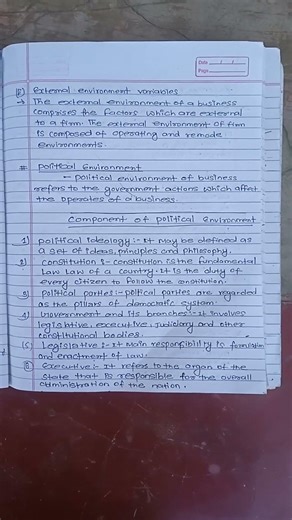 Date / /
Page
External environment variables
→ The external environment of a business
comprises the factors which are external
to a firm. The external environment of firm
is composed of operating and remode
environments.
# Political Environment
- political environment of business
refers to the government actions which affect
the operates of a business.
Component of political Environment
1) political ideology :- It may be defined as
a set of ideas, principles and philosophy.
2) constitution :- constitution is the fundamental
Law Law of a country. It is the duty of
every citizen to follow the constitution.
3) political parties :- poltical parties are regarded
as the pillars of democratic system.
4) Government and its branches :- It involves
legislative, executive, judiciary and other
constitutional bodies.
Legislative :- It main responsibility is formulation
and enactment of law.
Executive :- It refers to the organ of the
state that is responsible for the overall
administration of the nation.